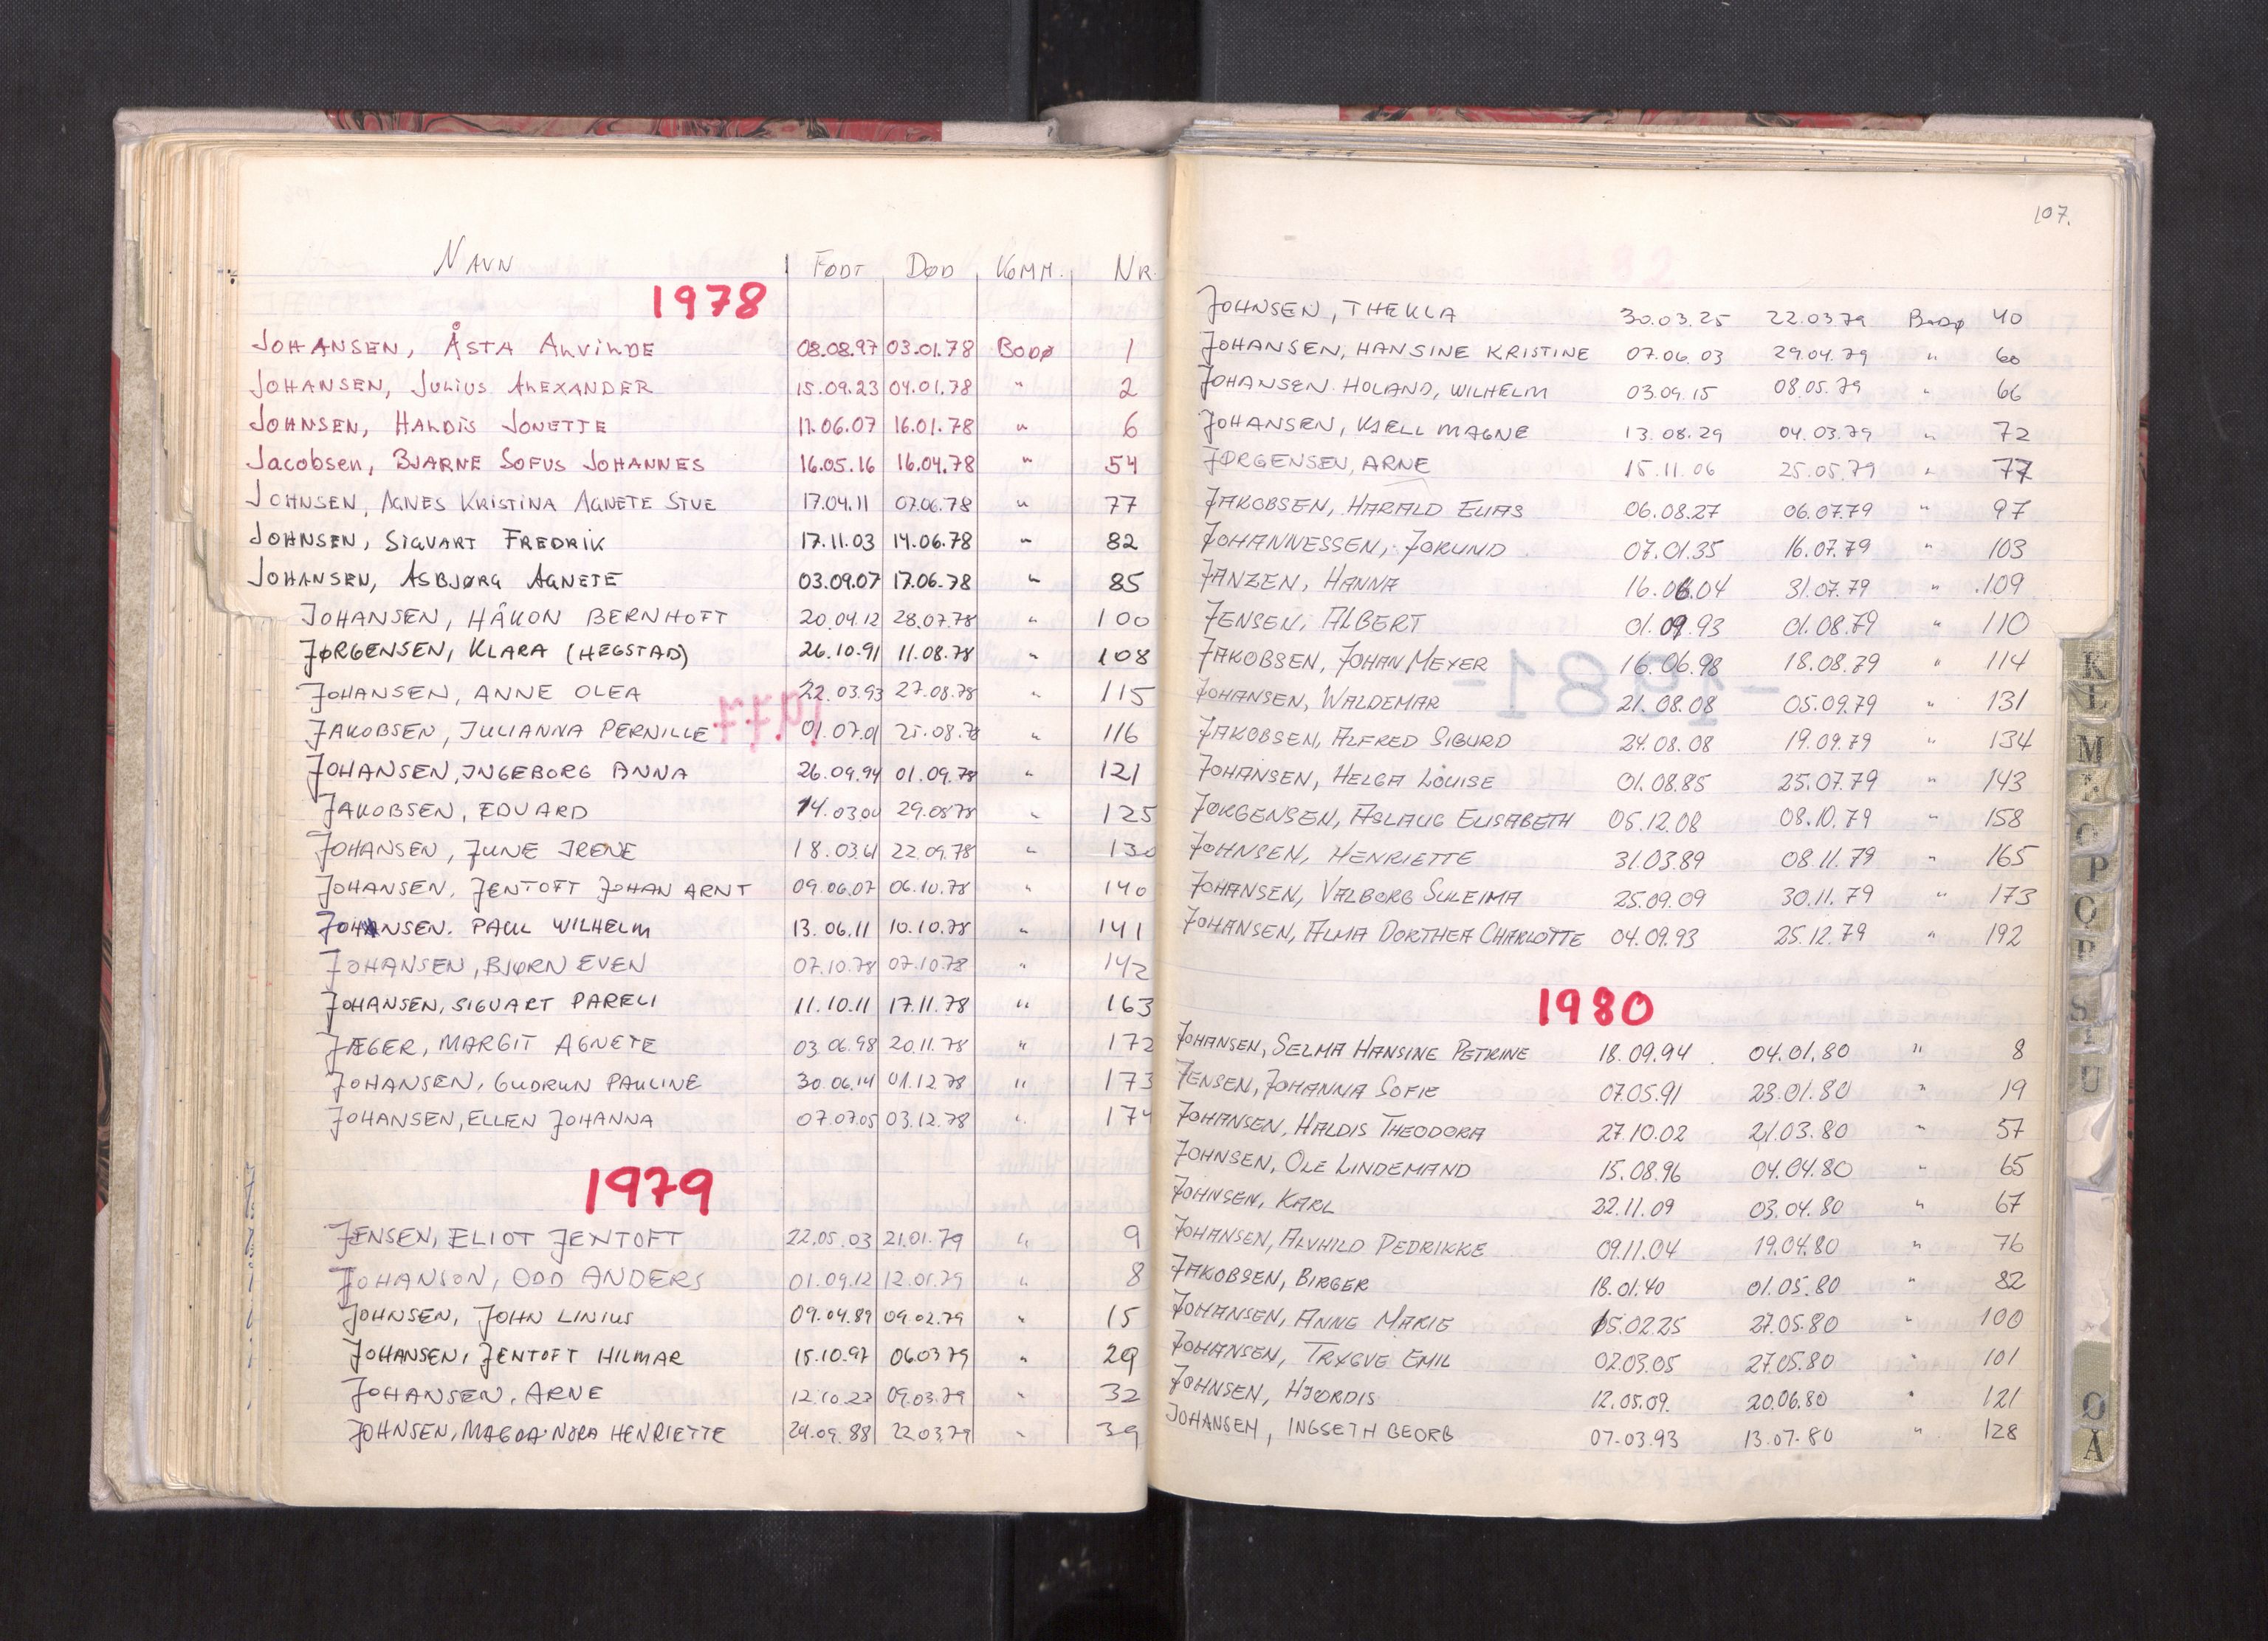 NAVN FØDT DØD KOMM. NR.
1978
JOHANSEN, ÅSTA ALVILDE 08.08.97 03.01.78 BODØ 1
JOHANSEN, JULIUS ALEXANDER 15.09.23 04.01.78 " 2
JOHNSEN, HALDIS JONETTE 17.06.07 16.01.78 " 6
Jacobsen, BJARNE SOFUS JOHANNES 16.05.16 16.04.78 " 54
JOHNSEN, AGNES KRISTINA AGNETE STUE 17.04.11 07.06.78 " 77
JOHNSEN, SIGVART FREDRIK 17.11.03 14.06.78 " 82
JOHANSEN, ASBJØRG AGNETE 03.09.07 17.06.78 " 85
JOHANSEN, HÅKON BERNHOFT 20.04.12 28.07.78 " 100
JØRGENSEN, KLARA (HEGSTAD) 26.10.91 11.08.78 " 108
JOHANSEN, ANNE OLEA 22.03.93 27.08.78 " 115
JAKOBSEN, JULIANNA PERNILLE 01.07.01 25.08.78 " 116
JOHANSEN, INGEBORG ANNA 26.09.94 01.09.78 " 121
JAKOBSEN, EDVARD 14.03.00 29.08.78 " 125
JOHANSEN, JUNE IRENE 18.03.61 22.09.78 " 130
JOHANSEN, JENTOFT JOHAN ARNT 09.06.07 06.10.78 " 140
JOHANSEN. PAUL WILHELM 13.06.11 10.10.78 " 141
JOHANSEN, BJØRN EVEN 07.10.78 07.10.78 " 142
JOHANSEN, SIGVART PARELI 11.10.11 17.11.78 " 163
JÆGER, MARGIT AGNETE 03.06.98 20.11.78 " 172
JOHANSEN, GUDRUN PAULINE 30.06.14 01.12.78 " 173
JOHANSEN, ELLEN JOHANNA 07.07.05 03.12.78 " 174
1979
JENSEN, ELIOT JENTOFT 22.05.03 21.01.79 " 9
JOHANSON, ODD ANDERS 01.09.12 12.01.79 " 8
JOHNSEN, JOHN LINIUS 09.04.89 09.02.79 " 15
JOHANSEN, JENTOFT HILMAR 15.10.97 06.03.79 " 29
JOHANSEN, ARNE 12.10.23 09.03.79 " 32
JOHNSEN, MAGDA NORA HENRIETTE 24.09.88 22.03.79 " 39
107.
JOHNSEN, THEKLA 30.03.25 22.03.79 BODØ 40
JOHANSEN, HANSINE KRISTINE 07.06.03 29.04.79 " 60
JOHANSEN HOLAND, WILHELM 03.09.15 08.05.79 " 66
JOHANSEN, KJELL MAGNE 13.08.29 04.03.79 " 72
JØRGENSEN, ARNE 15.11.06 25.05.79 " 77
JAKOBSEN, HARALD ELIAS 06.08.27 06.07.79 " 97
JOHANNESSEN, JORUND 07.01.35 16.07.79 " 103
JANZEN, HANNA 16.06.04 31.07.79 " 109
JENSEN, ALBERT 01.09.93 01.08.79 " 110
JAKOBSEN, JOHAN MEYER 16.06.98 18.08.79 " 114
JOHANSEN, WALDEMAR 21.08.08 05.09.79 " 131
JAKOBSEN, ALFRED SIGURD 24.08.08 19.09.79 " 134
JOHANSEN, HELGA LOUISE 01.08.85 25.07.79 " 143
JØRGENSEN, ASLAUG ELISABETH 05.12.08 08.10.79 " 158
JOHNSEN, HENRIETTE 31.03.89 08.11.79 " 165
JOHANSEN, VALBORG SULEIMA 25.09.09 30.11.79 " 173
JOHANSEN, ALMA DORTHEA CHARLOTTE 04.09.93 25.12.79 " 192
1980
JOHANSEN, SELMA HANSINE PETRINE 18.09.94 04.01.80 " 8
JENSEN, JOHANNA SOFIE 07.05.91 23.01.80 " 19
JOHANSEN, HALDIS THEODORA 27.10.02 21.03.80 " 57
JOHNSEN, OLE LINDEMAND 15.08.96 04.04.80 " 65
JOHNSEN, KARL 22.11.09 03.04.80 " 67
JOHANSEN, ALVHILD PEDRIKKE 09.11.04 19.04.80 " 76
JAKOBSEN, BIRGER 18.01.40 01.05.80 " 82
JOHANSEN, ANNE MARIE 15.02.25 27.05.80 " 100
JOHANSEN, TRYGVE EMIL 02.03.05 27.05.80 " 101
JOHNSEN, HJØRDIS 12.05.09. 20.06.80 " 121
JOHANSEN, INGSETH GEORG 07.03.93 13.07.80 " 128
K
L
M
P
S
U
Å